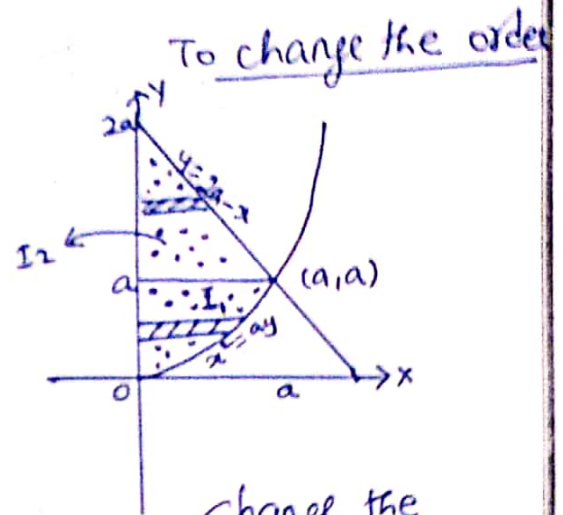 To change the order
Y
2a
y=2a-x
I2
a
(a,a)
I1
x²=ay
O
a
X
change the